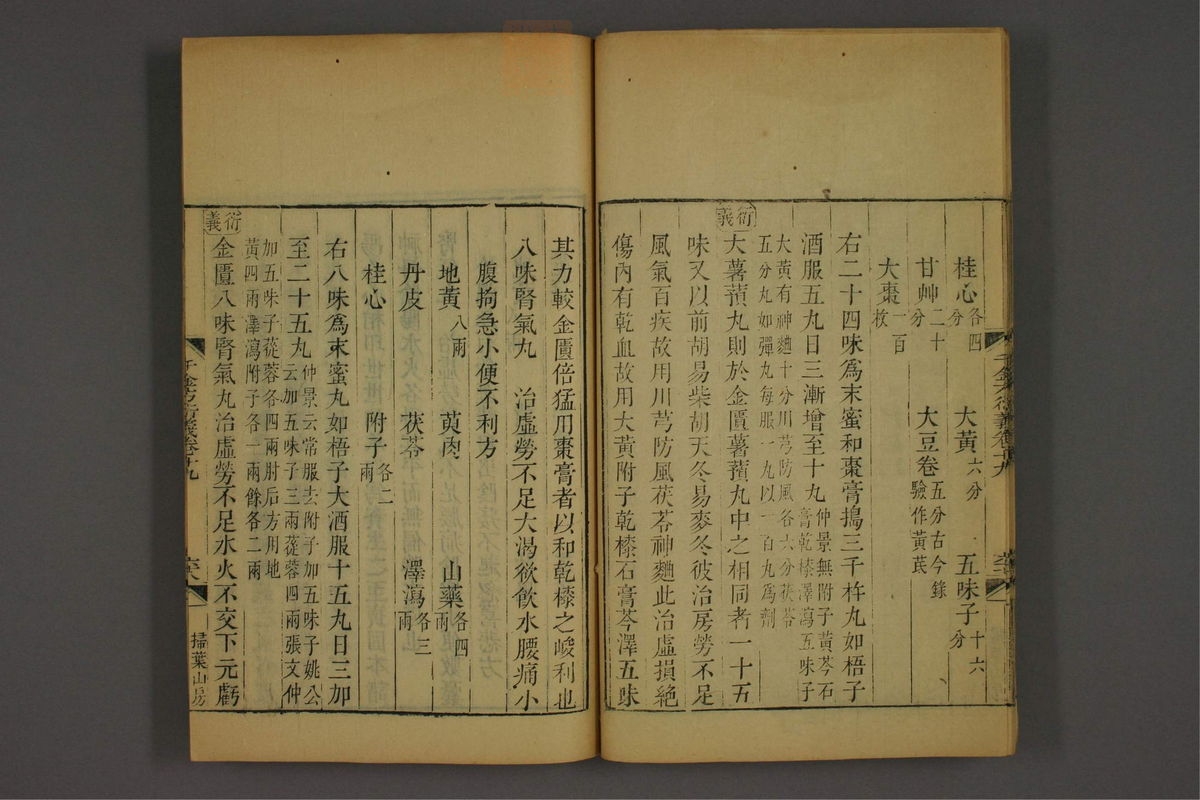 桂心各四分 大黃六分 五味子十六分
甘艸二十分 大豆卷五分古今錄驗作黃茋
大棗一百枚
右二十四味爲末蜜和棗膏搗三千杵丸如梧子
酒服五丸日三漸增至十丸仲景無附子黃芩石膏乾㯃澤瀉五味子
大黃有神麯十分川芎防風各六分茯苓五分丸如彈丸每服一丸以一百丸爲劑
衍義
大薯蕷丸則於金匱薯蕷丸中之相同者一十五
味又以前胡易柴胡天冬易麥冬彼治房勞不足
風氣百疾故用川芎防風茯苓神麯此治虛損絕
傷內有乾血故用大黃附子乾㯃石膏芩澤五味
千金方衍義卷十九
其力較金匱倍猛用棗膏者以和乾㯃之峻利也
八味腎氣丸 治虛勞不足大渴欲飲水腰痛小
腹拘急小便不利方
地黃八兩 萸肉 山藥各四兩
丹皮 茯苓 澤瀉各三兩
桂心 附子各二兩
右八味爲末蜜丸如梧子大酒服十五丸日三加
至二十五丸仲景云常服去附子加五味子姚公云加五味子三兩蓯蓉四兩張文仲
加五味子蓯蓉各四兩肘后方用地黃四兩澤瀉附子各一兩餘各二兩
衍義
金匱八味腎氣丸治虛勞不足水火不交下元虧
千金方衍義卷十九
掃葉山房